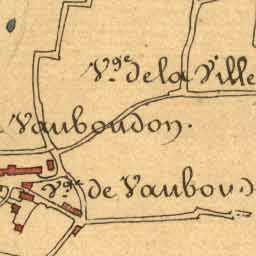 V.ge de la Ville
Vauboudon.
V.ge de Vaubou